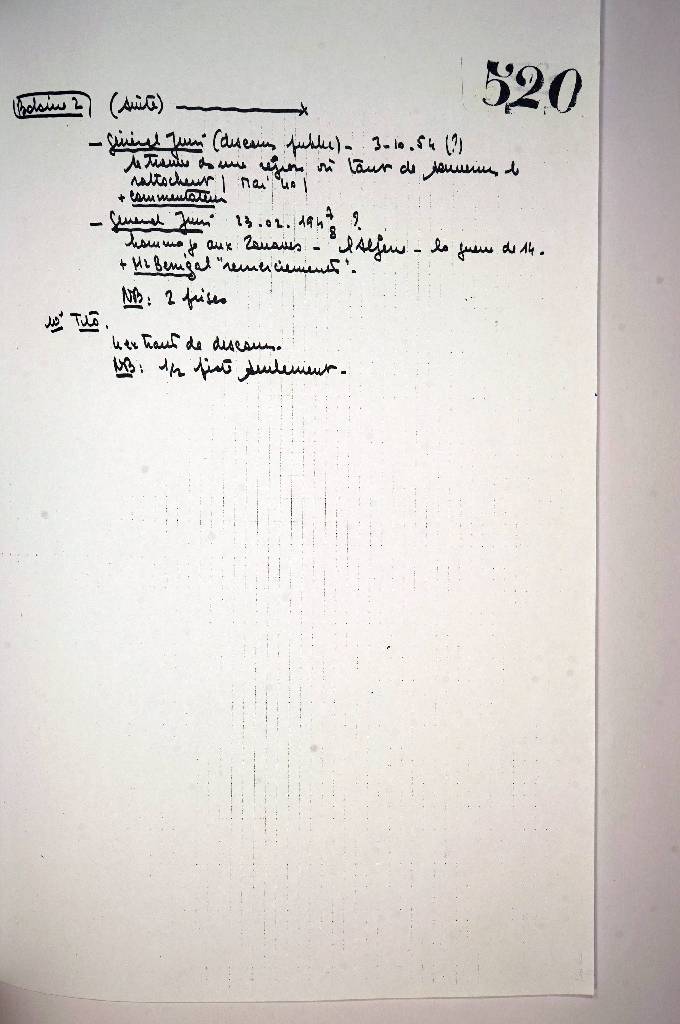 520
Bobine 2 (suite)
- Général Juin (discours public) - 3-10.54 (?)
se trouve ds une région où tant de souvenirs le
rattachent (mai 40)
+ commentateur
- Général Juin 23.02.1947 8 ?
hommage aux Zouaves - l'Algérie - la guerre de 14.
+ "remerciements".
NB: 2 prises
Tito.
extrait de discours.
NB: 1/2 piste seulement.